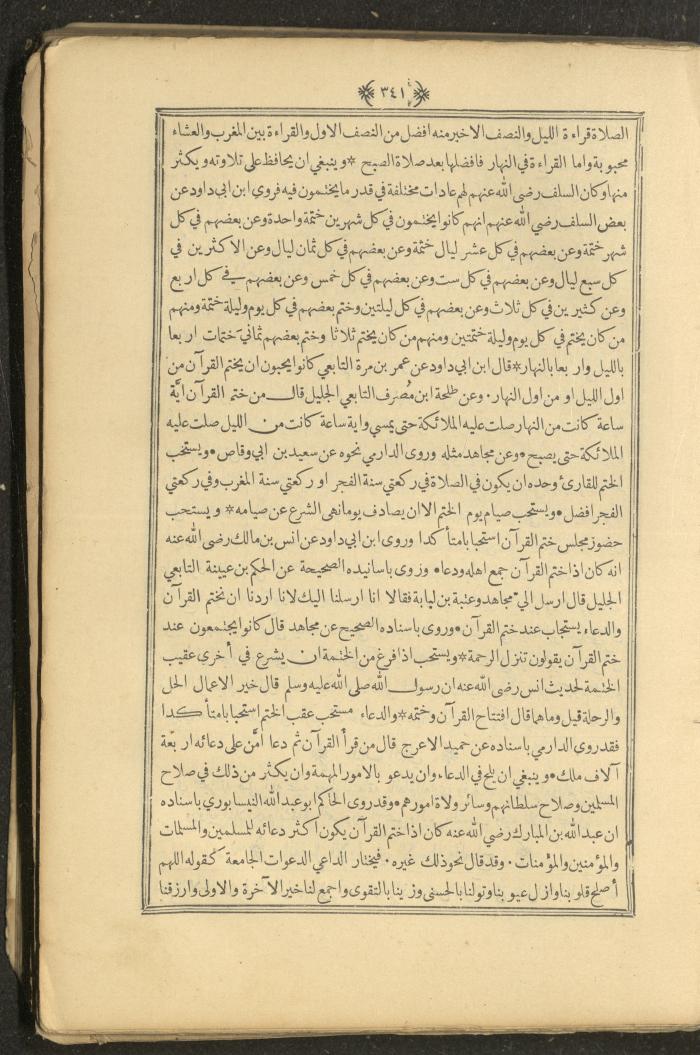 ٣٤١
الصلاة قراءة الليل والنصف الاخير منه افضل من النصف الاول والقراءة بين المغرب والعشاء
محبوبة واما القراءة في النهار فافضلها بعد صلاة الصبح * وينبغي ان يحافظ على تلاوته ويكثر
منها وكان السلف رضى الله عنهم لهم عادات مختلفة في قدر ما يختمون فيه فروى ابن ابي داود عن
بعض السلف رضي الله عنهم انهم كانوا يختمون في كل شهرين ختمة واحدة وعن بعضهم في كل
شهر ختمة وعن بعضهم في كل عشر ليال ختمة وعن بعضهم في كل ثمان ليال وعن الاكثرين في
كل سبع ليال وعن بعضهم في كل ست وعن بعضهم في كل خمس وعن بعضهم في كل اربع
وعن كثيرين في كل ثلاث وعن بعضهم في كل ليلتين وختم بعضهم في كل يوم وليلة ختمة ومنهم
من كان يختم في كل يوم وليلة ختمتين ومنهم من كان يختم ثلاثا وختم بعضهم ثماني ختمات اربعا
بالليل واربعا بالنهار * قال ابن ابي داود عن عمر بن مرة التابعي كانوا يحبون ان يختم القرآن من
اول الليل او من اول النهار ٠ وعن طلحة ابن مُصَرف التابعي الجليل قال من ختم القرآن ايَّة
ساعة كانت من النهار صلت عليه الملائكة حتى يمسي واية ساعة كانت من الليل صلت عليه
الملائكة حتى يصبح • وعن مجاهد مثله وروى الدارمي نحوه عن سعيد بن ابي وقاص • ويستحب
الختم للقارئ وحده ان يكون في الصلاة في ركعتي سنة الفجر او ركعتي سنة المغرب وفي ركعتي
الفجر افضل • ويستحب صيام يوم الختم الا ان يصادف يوما نهى الشرع عن صيامه * ويستحب
حضور مجلس ختم القرآن استحبابا متأكدا وروى ابن ابي داود عن انس بن مالك رضى الله عنه
انه كان اذا ختم القرآن جمع اهله ودعا • وروى باسانيده الصحيحة عن الحكم بن عيينة التابعي
الجليل قال ارسل اليّ مجاهد وعتبة بن لبابة فقالا انا ارسلنا اليك لانا اردنا ان نختم القرآن
والدعاء يستجاب عند ختم القرآن • وروى باسناده الصحيح عن مجاهد قال كانوا يجتمعون عند
ختم القرآن يقولون تنزل الرحمة * ويستحب اذا فرغ من الختمة ان يشرع في أخرى عقيب
الختمة لحديث انس رضى الله عنه ان رسول الله صلى الله عليه وسلم قال خير الاعمال الحل
والرحلة قيل وما هما قال افتتاح القرآن وختمه * والدعاء مستحب عقب الختم استحبابا متأكدا
فقد روى الدارمي باسناده عن حميد الاعرج قال من قرأ القرآن ثم دعا أمَّن على دعائه اربعة
آلاف ملك • وينبغي ان يلح في الدعاء وان يدعو بالامور المهمة وان يكثر من ذلك في صلاح
المسلمين وصلاح سلطانهم وسائر ولاة امورهم • وقد روى الحاكم ابو عبد الله النيسابوري باسناده
ان عبد الله بن المبارك رضى الله عنه كان اذا ختم القرآن يكون اكثر دعائه للمسلمين والمسلمات
والمؤمنين والمؤمنات ٠ وقد قال نحو ذلك غيره ٠ فيختار الداعي الدعوات الجامعة كقوله اللهم
أصلح قلوبنا وازل عيوبنا وتولنا بالحسنى وزينا بالتقوى واجمع لنا خير الآخرة والاولى وارزقنا